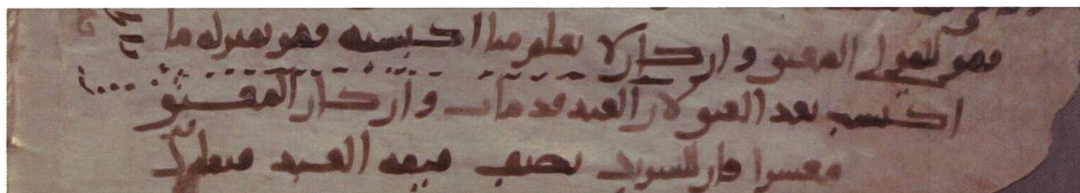 فهو للمولى المعتق وان كان لا يعلم متى اكتسبه فهو بمنزلة ما
اكتسب بعد العتق لان العبد قد مات وان كان المعتق
معسرا فان للشريك نصف قيمة العبد